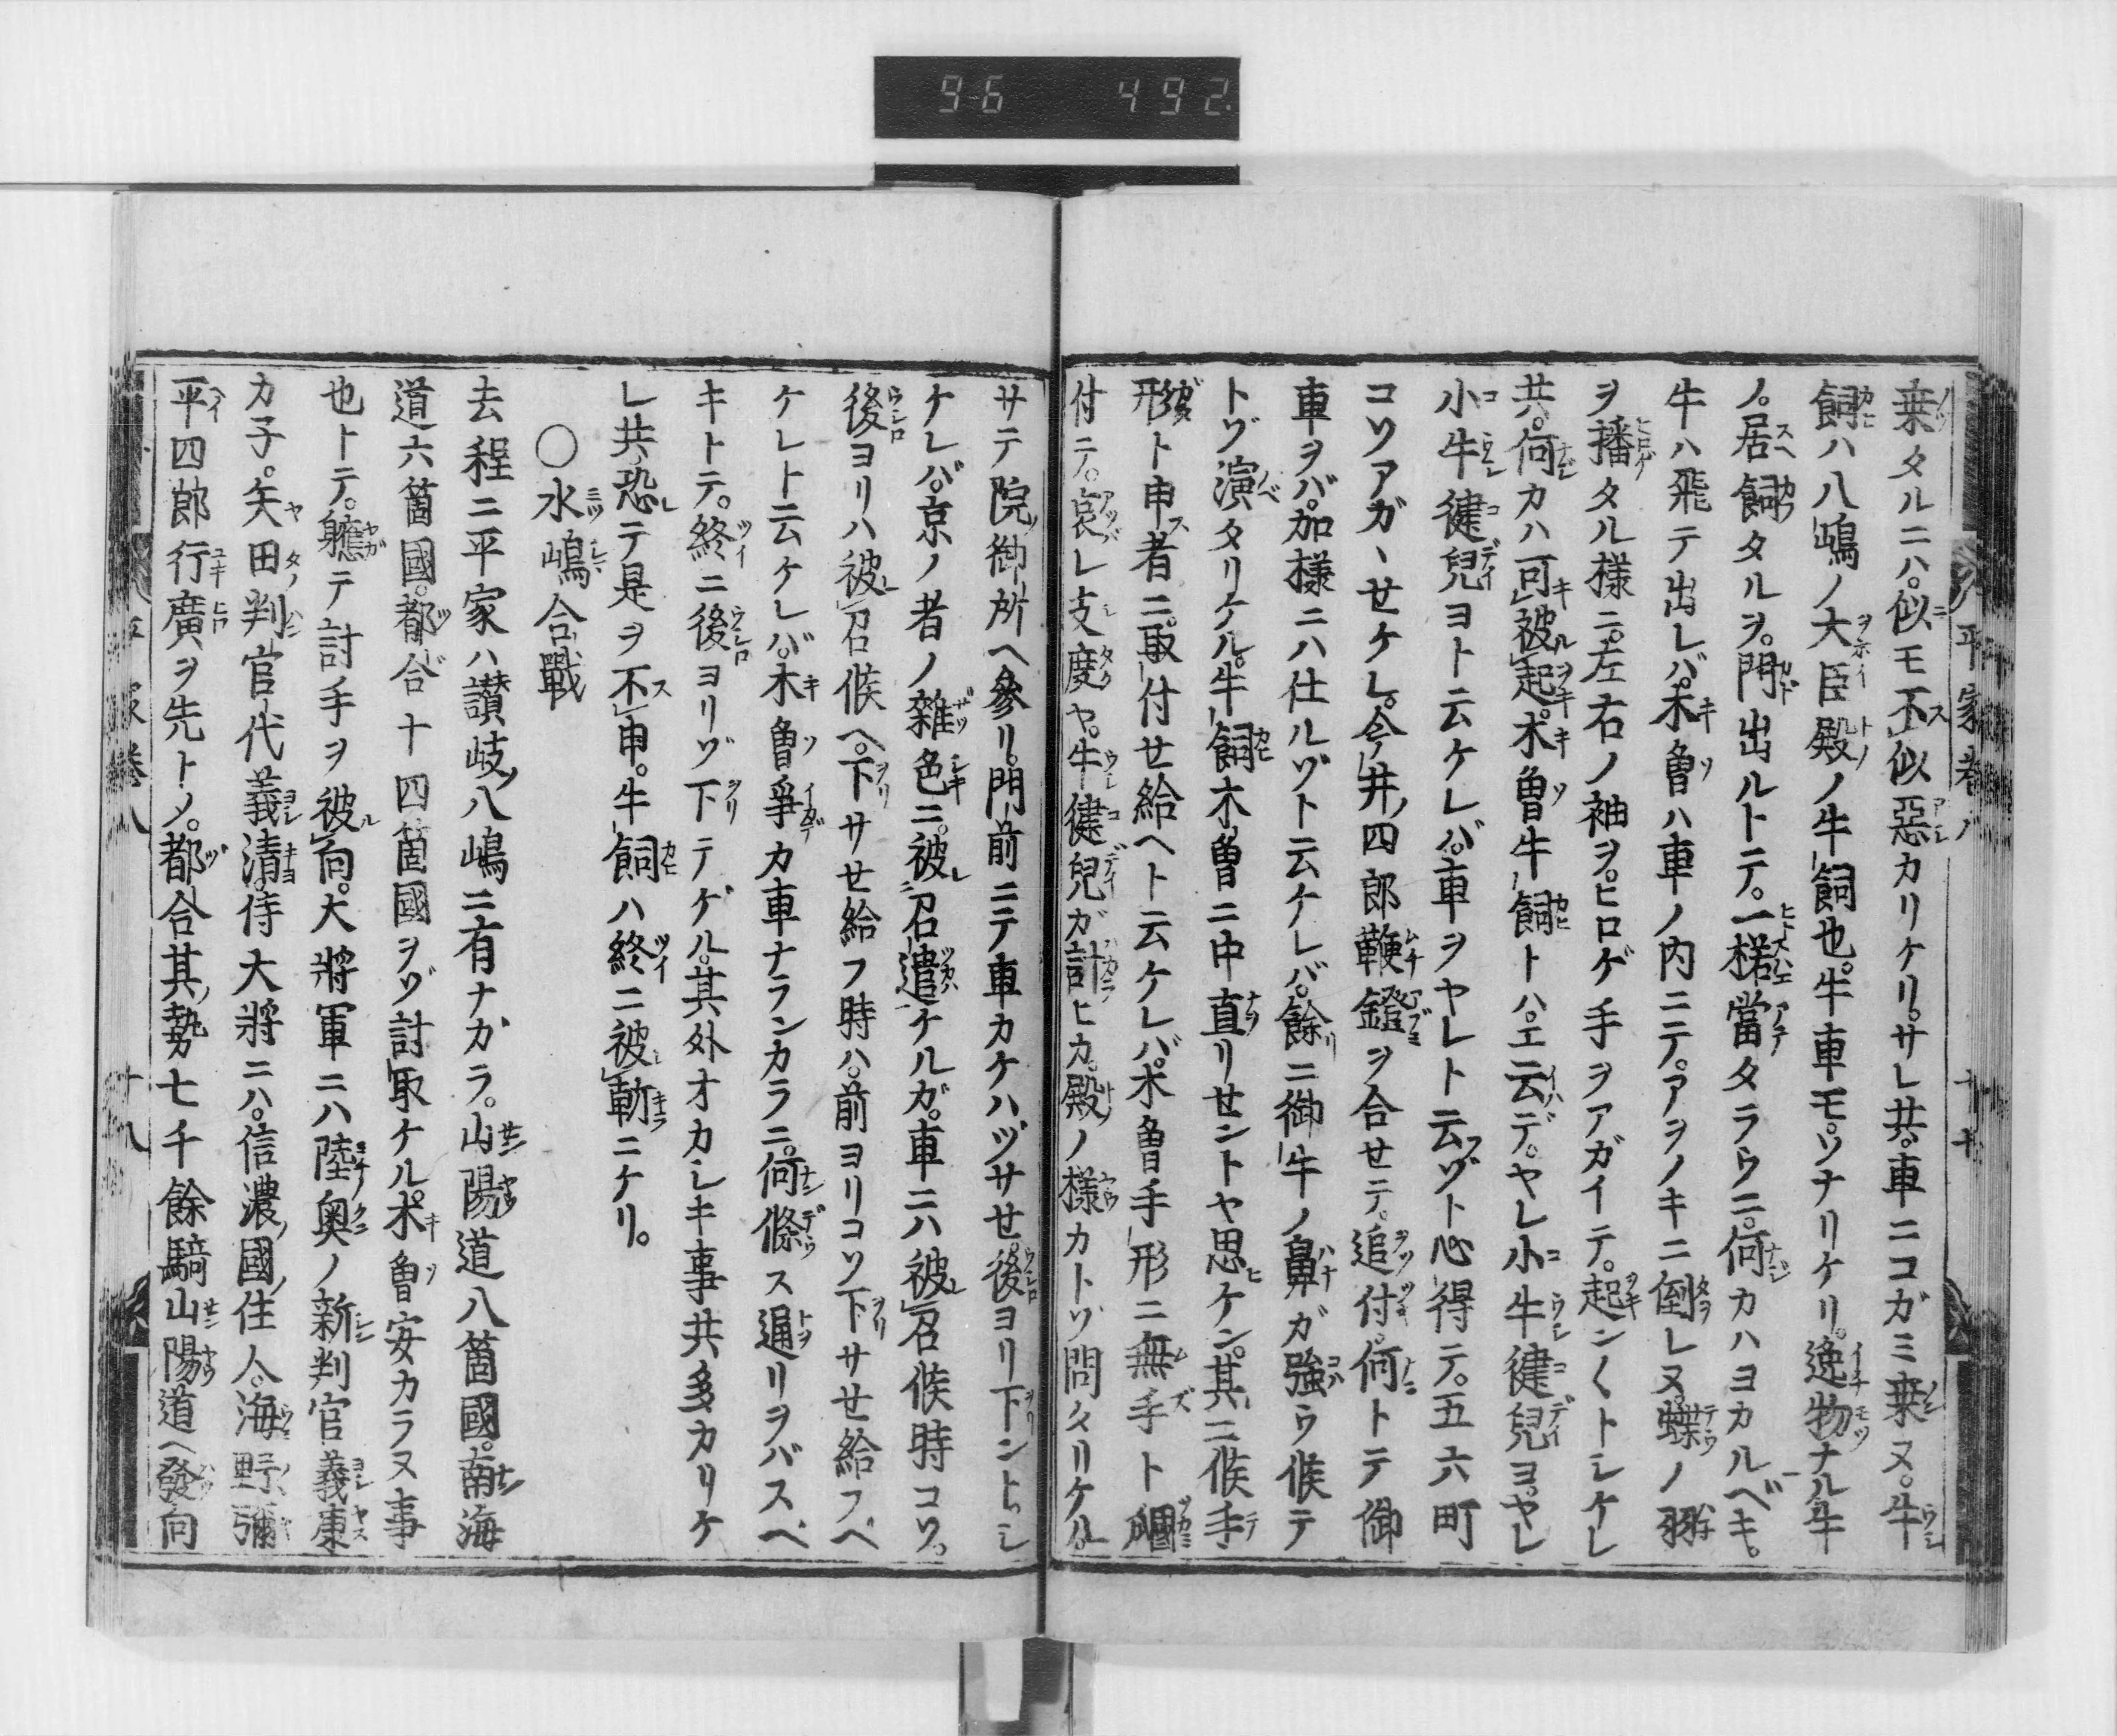 96 492
乗タルニハ。似モ不似惡カリケリ。サレ共。車ニコガミ乗ヌ。牛
飼ハ八嶋ノ大臣殿ノ牛飼也。牛車モ。ソナリケリ。逸物ナル牛
ノ。居飼タルヲ。門出ルトテ。一楉當タラウニ。何カハヨカルベキ。
牛ハ飛テ出レバ。木曽ハ車ノ内ニテ。アヲノキニ倒レヌ。蝶ノ羽
ヲ播タル様ニ。左右ノ袖ヲ。ヒロゲ手ヲアガイテ。起ン〱トシケレ
共。何カハ可被起。木曽牛飼トハ。エ云デ。ヤレ小牛健兒ヨ。ヤレ
小牛健兒ヨト云ケレバ。車ヲヤレト云ゾト心得テ。五六町
コソアガヽせケレ。今井四郎鞭鐙ヲ合せテ。追付。何トテ御
車ヲバ。加様ニハ仕ルゾト云ケレバ。餘ニ御牛ノ鼻ガ強ウ候テ
トゾ演タリケル。牛飼木曽ニ中直リせントヤ思ケン。其ニ候手
形ト申者ニ。取付せ給ヘト云ケレバ。木曽手形ニ無手ト摑
付テ。哀レ支度ヤ。牛健兒ガ計ヒカ。殿ノ様カトゾ問タリケル。
サテ院御所ヘ參リ。門前ニテ車カケハヅサせ。後ヨリ下ントシ
ケレバ。京ノ者ノ雜色ニ。被召遣ケルガ。車ニハ被召候時コソ。
後ヨリハ被召候ヘ。下サせ給フ時ハ。前ヨリコソ下サせ給フベ
ケレト云ケレバ。木曽爭カ車ナランカラニ。何條ス通リヲバスベ
キトテ。終ニ後ヨリゾ下テゲル。其外オカシキ事共多カリケ
レ共。恐テ是ヲ不申。牛飼ハ終ニ被斬ニケリ。
○水嶋合戰
去程ニ平家ハ讃岐ノ八嶋ニ有ナガラ。山陽道八箇國。南海
道六箇國。都合十四箇國ヲゾ討取ケル。木曽安カラヌ事
也トテ。軈テ討手ヲ被向。大將軍ニハ陸奥ノ新判官義康
カ子。矢田判官代義清。侍大將ニハ。信濃國ノ住人。海野彌
平四郎行廣ヲ先トメ。都合其勢七千餘騎山陽道ヘ發向
平家巻八
平家巻八 十八